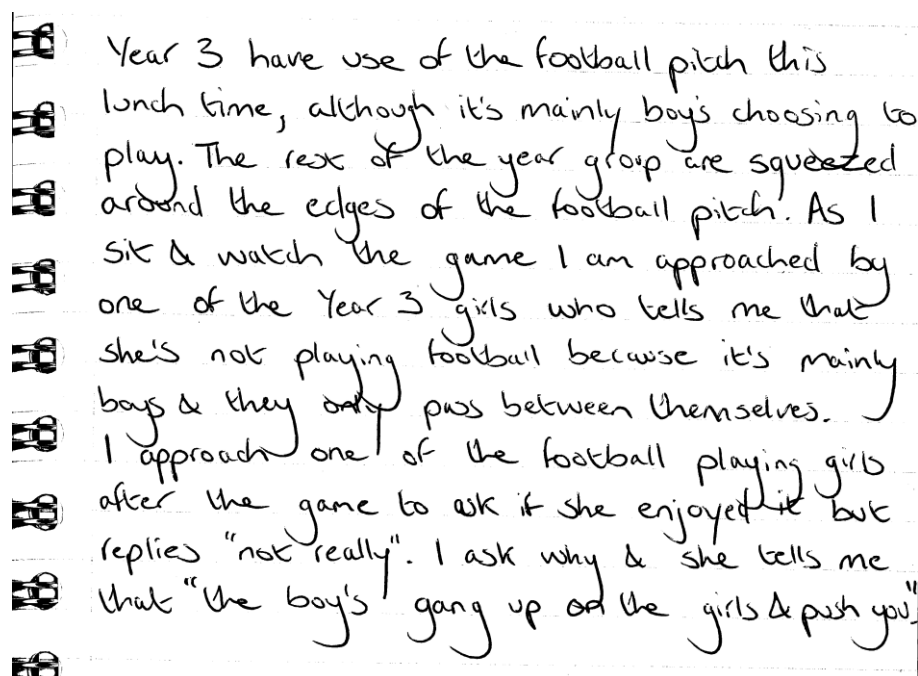 Year 3 have use of the football pitch this
lunch time, although it's mainly boy's choosing to
play. The rest of the year group are squeezed
around the edges of the football pitch. As I
sit & watch the game I am approached by
one of the Year 3 girls who tells me that
she's not playing football because it's mainly
boys & they only pass between themselves.
I approach one of the football playing girls
after the game to ask if she enjoyed it but
replies "not really". I ask why & she tells me
that "the boy's gang up on the girls & push you".